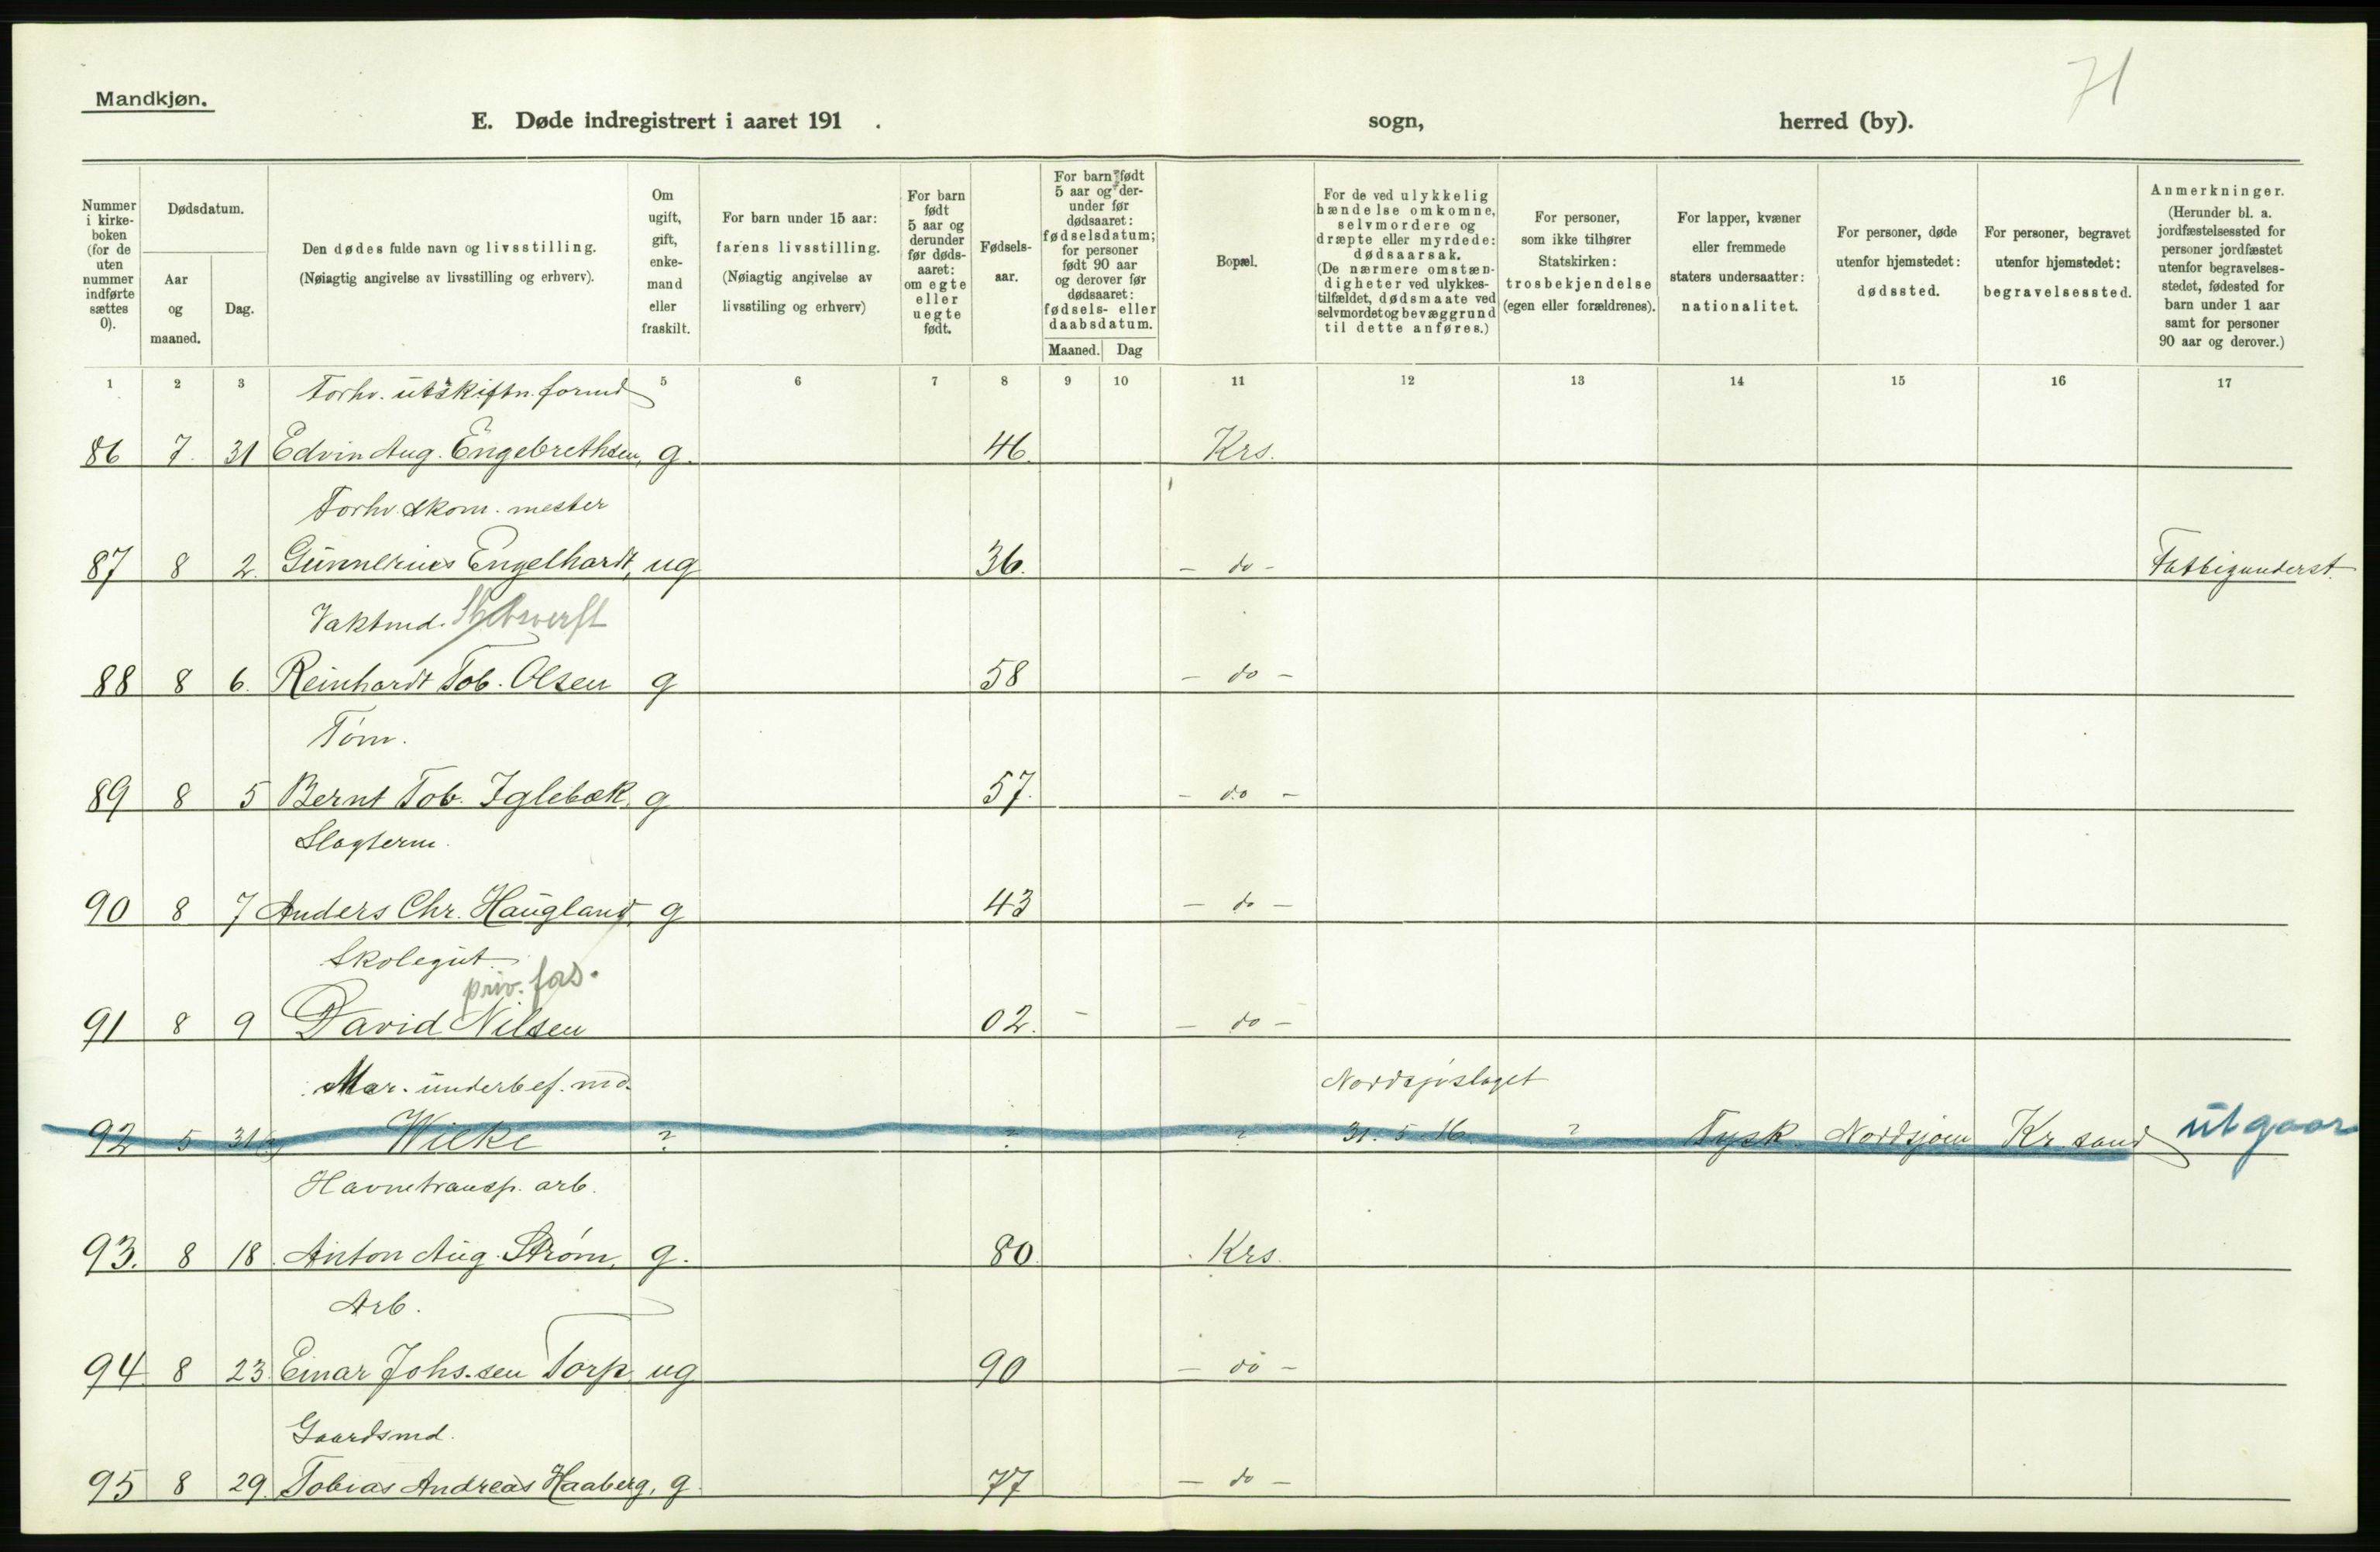 71
Mandkjøn.
E. Døde indregistrert i aaret 191 . sogn, herred (by).
Nummer i kirke-boken (for de uten nummer indførte sættes 0).
Dødsdatum.
Aar og maaned.
Dag.
Den dødes fulde navn og livsstilling.
(Nøiagtig angivelse av livsstilling og erhverv).
Om ugift, gift, enke-mand eller fraskilt.
For barn under 15 aar: farens livsstilling. (Nøiagtig angivelse av livsstiling og erhverv)
For barn født 5 aar og derunder før døds-aaret: om egte eller uegte født.
Fødsels-aar.
For barn født 5 aar og der-under før dødsaaret: fødselsdatum; for personer født 90 aar og derover før dødsaaret: fødsels- eller daabsdatum.
Maaned. Dag
Bopæl.
For de ved ulykkelig hændelse omkomne, selvmordere og dræpte eller myrdede: dødsaarsak. (De nærmere omstæn-digheter ved ulykkes-tilfældet, dødsmaate ved selvmordet og bevæggrund til dette anføres.)
For personer, som ikke tilhører Statskirken: trosbekjendelse (egen eller forældrenes).
For lapper, kvæner eller fremmede staters undersaatter: nationalitet.
For personer, døde utenfor hjemstedet: dødssted.
For personer, begravet utenfor hjemstedet: begravelsessted.
Anmerkninger. (Herunder bl. a. jordfæstelsessted for personer jordfæstet utenfor begravelses-stedet, fødested for barn under 1 aar samt for personer 90 aar og derover.)
1 2 3 5 6 7 8 9 10 11 12 13 14 15 16 17
Forhv. utskiftn. formd
86 7. 31 Edvin Aug. Engebrethsen, g. 46. Krs.
Forhv. skom. mester
87 8 2. Gunnerius Engelhardt, ug 36. - do - Fattigunderst.
Vaktmd.
88 8 6. Reinhardt Tob. Olsen g 58 - do -
Tøm.
89 8 5 Bernt Tob. Iglebæk, g 57. - do -
Slagterm.
90 8 7 Anders Chr. Haugland, g 43 - do -
Skolegut.
priv. fas.
91 8 9 David Nilsen 02. - - do -
Mar. underbef. md. Nordsjøslaget
92 5 31 Wilke ? ? ? 31. 5. 16. ? Tysk. Nordsjøen Kr. sand utgaar
Havnetransp. arb.
93. 8 18. Anton Aug. Strøm, g. 80. Krs.
Arb.
94. 8 23. Einar Johs.sen Torp ug 90 - do -
Gaardsmd.
95 8 29. Tobias Andreas Haaberg, g. 77 - do -